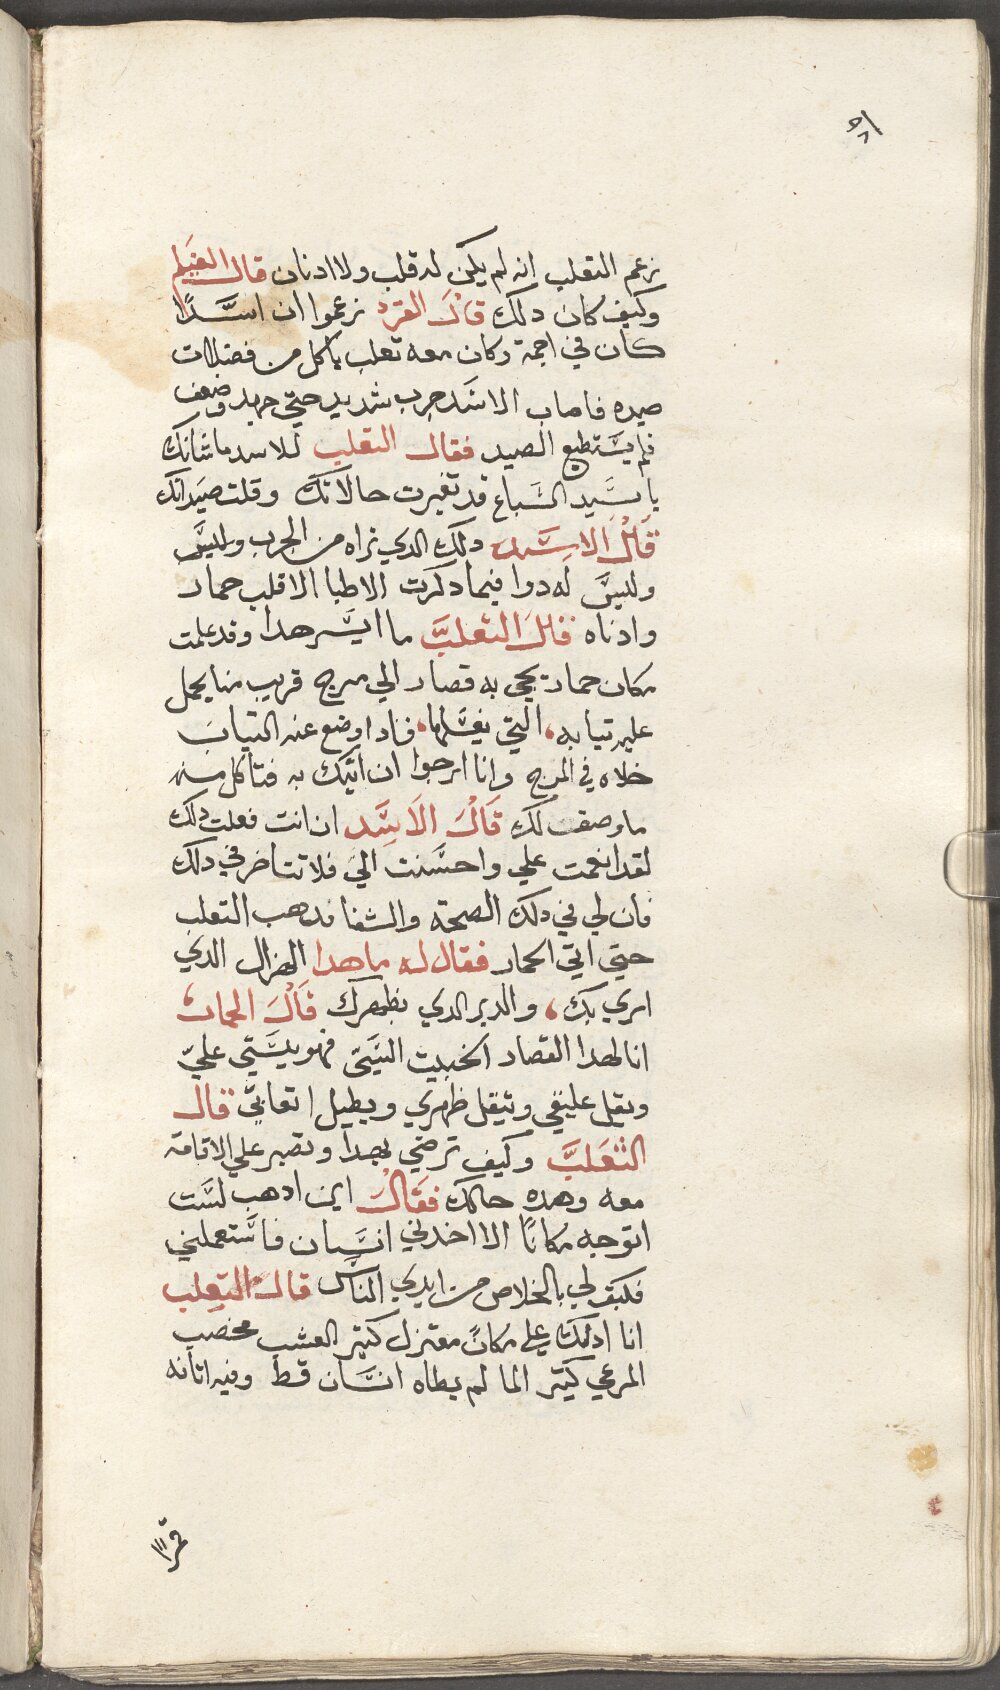 ٩٨
زعم التعلب انه لم يكن له قلب ولا ادنان قال الغيلم
وكيف كان دلك قال القرد زعموا ان اسدًا
كان في اجمة وكان معه تعلب ياكل من فضلات
صيده فاصاب الاسد جرب شديد حتي جهد وضعف
فلم يستطيع الصيد فقال التعلب للاسد ما شانك
يا سيد السباع قد تغيرت حالاتك وقلت صيداتك
قال الاسد دلك الدي تراه من الجرب وليس
وليس له دوا فيما دكرت الاطبا الا قلب حمار
وادناه قال التعلب ما ايسر هدا وقد علمت
مكان حمار يجي به قصار الي مرج قريب منا يحمل
عليه تيابه التي يغسلها فادا وضع عنه التياب
خلاه في المرج وانا ارجوا ان اتيك به فتاكل منه
ما وصفت لك قال الاسد ان انت فعلت دلك
لقد انعمت علي واحسنت الي فلا تتاخر في دلك
فان لي في دلك الصحة والشفا فدهب التعلب
حتي اتي الحمار فقال له ما هدا الهزال الدي
اري بك والدبر الدي بظهرك قال الحمار
انا لهدا القصار الخبيت النيتي فهو يستي عليّ
ويقل عليفي ويتقل ظهري ويطيل اتعابي قال
التعلب وكيف ترضي بهدا وتصبر علي الاقامة
معه وهده حالك فقال اين ادهب لست
اتوجه مكانًا الا اخدني انسان فاستعملني
فكيف لي بالخلاص من ايدي الناس قال التعلب
انا ادلك علي مكانً معتزل كتير العشب مخصب
المرعي كتير الما لم يطاه انسان قط وفيه اتانه